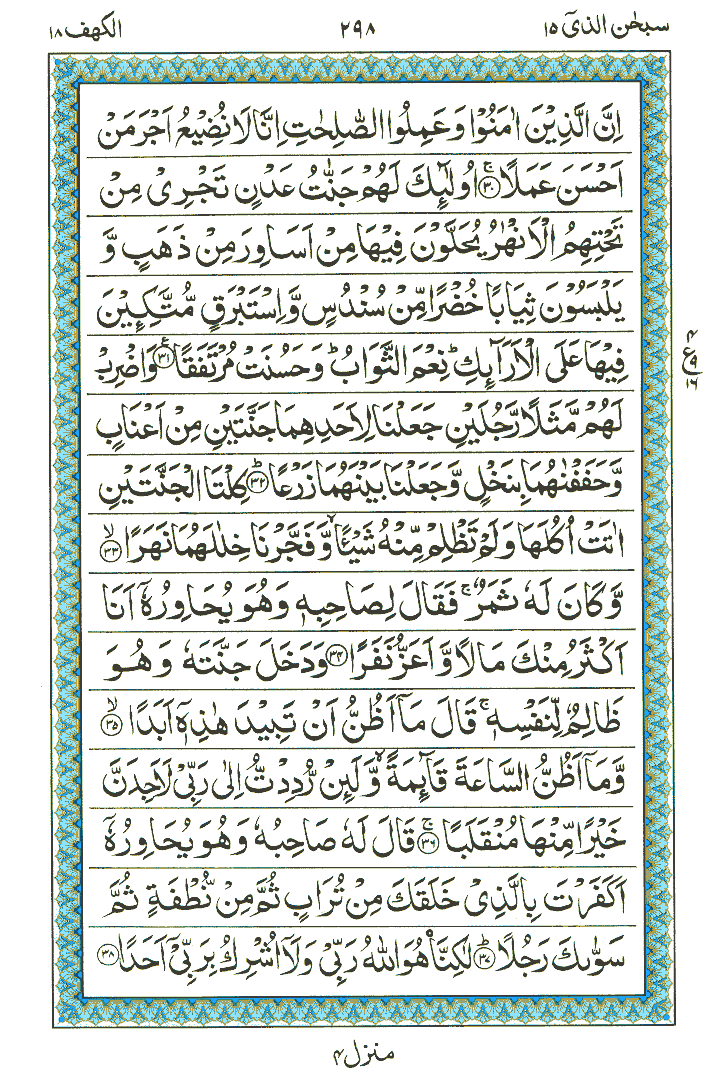 سبحٰن الذیٓ ۱۵ ۲۹۸ الکھف ۱۸
اِنَّ الَّذِيْنَ اٰمَنُوْا وَ عَمِلُوا الصّٰلِحٰتِ اِنَّا لَا نُضِيْعُ اَجْرَ مَنْ
اَحْسَنَ عَمَلًا ۚ﴿۳۰﴾ اُولٰٓئِكَ لَهُمْ جَنّٰتُ عَدْنٍ تَجْرِيْ مِنْ
تَحْتِهِمُ الْاَنْهٰرُ يُحَلَّوْنَ فِيْهَا مِنْ اَسَاوِرَ مِنْ ذَهَبٍ وَّ
يَلْبَسُوْنَ ثِيَابًا خُضْرًا مِّنْ سُنْدُسٍ وَّ اِسْتَبْرَقٍ مُّتَّكِـِٕيْنَ
فِيْهَا عَلَى الْاَرَآىِٕكِ ؕ نِعْمَ الثَّوَابُ ؕ وَ حَسُنَتْ مُرْتَفَقًا ﴿۳۱﴾ وَ اضْرِبْ
۴
ع
۹
۱۶
لَهُمْ مَّثَلًا رَّجُلَيْنِ جَعَلْنَا لِاَحَدِهِمَا جَنَّتَيْنِ مِنْ اَعْنَابٍ
وَّ حَفَفْنٰهُمَا بِنَخْلٍ وَّ جَعَلْنَا بَيْنَهُمَا زَرْعًا ؕ﴿۳۲﴾ كِلْتَا الْجَنَّتَيْنِ
اٰتَتْ اُكُلَهَا وَ لَمْ تَظْلِمْ مِّنْهُ شَيْـًٔا ۙ وَّ فَجَّرْنَا خِلٰلَهُمَا نَهَرًا ۙ﴿۳۳﴾
وَّ كَانَ لَهٗ ثَمَرٌ ۚ فَقَالَ لِصَاحِبِهٖ وَ هُوَ يُحَاوِرُهٗۤ اَنَا
اَكْثَرُ مِنْكَ مَالًا وَّ اَعَزُّ نَفَرًا ﴿۳۴﴾ وَ دَخَلَ جَنَّتَهٗ وَ هُوَ
ظَالِمٌ لِّنَفْسِهٖ ۚ قَالَ مَاۤ اَظُنُّ اَنْ تَبِيْدَ هٰذِهٖۤ اَبَدًا ۙ﴿۳۵﴾
وَّ مَاۤ اَظُنُّ السَّاعَةَ قَآىِٕمَةً ۙ وَّ لَىِٕنْ رُّدِدْتُّ اِلٰى رَبِّيْ لَاَجِدَنَّ
خَيْرًا مِّنْهَا مُنْقَلَبًا ۚ﴿۳۶﴾ قَالَ لَهٗ صَاحِبُهٗ وَ هُوَ يُحَاوِرُهٗۤ
اَكَفَرْتَ بِالَّذِيْ خَلَقَكَ مِنْ تُرَابٍ ثُمَّ مِنْ نُّطْفَةٍ ثُمَّ
سَوّٰىكَ رَجُلًا ؕ﴿۳۷﴾ لٰكِنَّا۠ هُوَ اللّٰهُ رَبِّيْ وَ لَاۤ اُشْرِكُ بِرَبِّيْۤ اَحَدًا ﴿۳۸﴾
منزل ۴